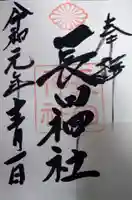 奉拝
長田神社
令和元年十一月一日